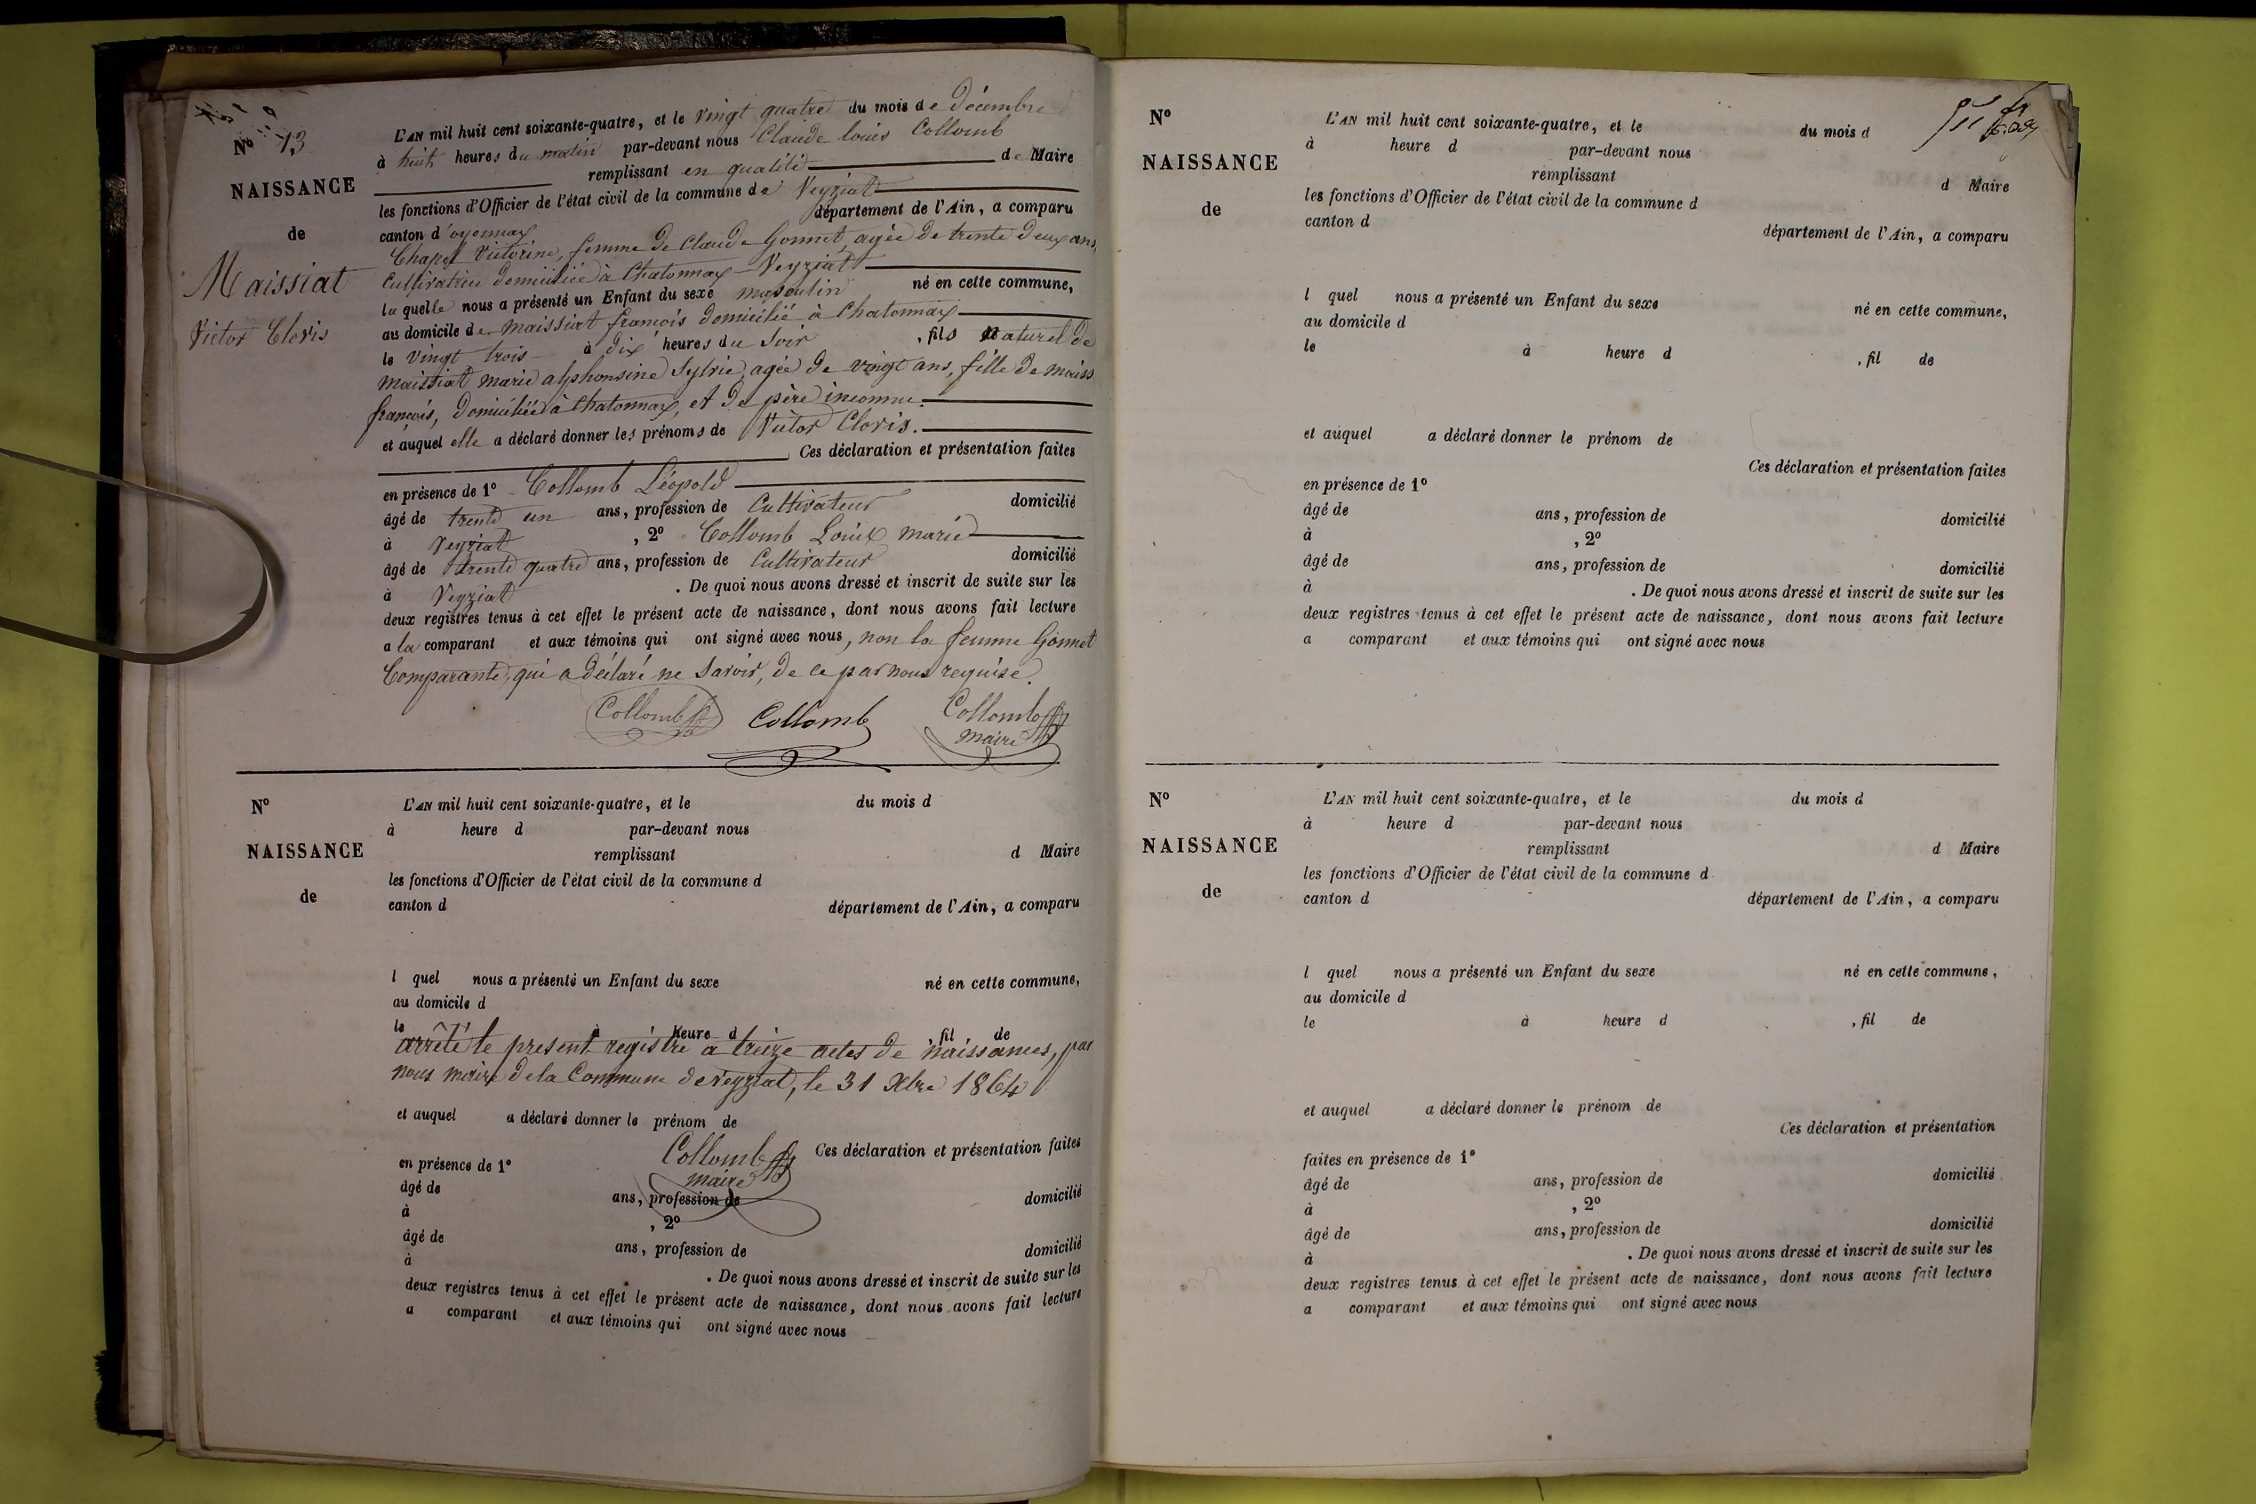 Nº 13
NAISSANCE
de
Maissiat
Victor Cloris
L'AN mil huit cent soixante-quatre, et le vingt quatre du mois de décembre
à huit heures du matin par-devant nous Claude louis Collomb
remplissant en qualité de Maire
les fonctions d'Officier de l'état civil de la commune de Veyziat
canton d'oyonnax département de l'Ain, a comparu
Chapel Victorine, femme de Claude Gonnet, agée de trente deux ans,
Cultivatrice domiciliée à Chatonnax Veyziat
la quelle nous a présenté un Enfant du sexe masculin né en cette commune,
au domicile de maissiat francois domicilié à Chatonnax
le vingt trois à dix heures du Soir , fils naturel de
maissiat marie alphonsine Sylvie, agée de vingt ans, fille de maiss
francois, domiciliée à Chatonnax, et de père inconnu.
et auquel elle a déclaré donner les prénoms de Victor Cloris.
Ces déclaration et présentation faites
en présence de 1º Collomb Léopold
âgé de trente un ans, profession de Cultivateur domicilié
à Veyziat , 2º Collomb Louis marie
âgé de trente quatre ans, profession de Cultivateur domicilié
à Veyziat . De quoi nous avons dressé et inscrit de suite sur les
deux registres tenus à cet effet le présent acte de naissance, dont nous avons fait lecture
a la comparant et aux témoins qui ont signé avec nous, non la femme Gonnet
Comparante, qui a déclaré ne Savoir, de ce par nous requise.
Collomb Collomb Collomb
maire
Nº
NAISSANCE
de
L'AN mil huit cent soixante-quatre, et le du mois d
à heure d par-devant nous
remplissant d Maire
les fonctions d'Officier de l'état civil de la commune d
canton d département de l'Ain, a comparu
l quel nous a présenté un Enfant du sexe né en cette commune,
au domicile d
le à heure d , fil de
arrêté le present registre a treize actes de naissances, par
nous maire de la Commune de Veyziat, le 31 Xbre 1864
et auquel a déclaré donner le prénom de
Collomb Ces déclaration et présentation faites
maire
en présence de 1º
âgé de ans, profession de domicilié
à , 2º
âgé de ans, profession de domicilié
à . De quoi nous avons dressé et inscrit de suite sur les
deux registres tenus à cet effet le présent acte de naissance, dont nous avons fait lecture
a comparant et aux témoins qui ont signé avec nous
Nº
NAISSANCE
de
L'AN mil huit cent soixante-quatre, et le du mois d
à heure d par-devant nous
remplissant d Maire
les fonctions d'Officier de l'état civil de la commune d
canton d département de l'Ain, a comparu
l quel nous a présenté un Enfant du sexe né en cette commune,
au domicile d
le à heure d , fil de
et auquel a déclaré donner le prénom de
Ces déclaration et présentation faites
en présence de 1º
âgé de ans, profession de domicilié
à , 2º
âgé de ans, profession de domicilié
à . De quoi nous avons dressé et inscrit de suite sur les
deux registres tenus à cet effet le présent acte de naissance, dont nous avons fait lecture
a comparant et aux témoins qui ont signé avec nous
Nº
NAISSANCE
de
L'AN mil huit cent soixante-quatre, et le du mois d
à heure d par-devant nous
remplissant d Maire
les fonctions d'Officier de l'état civil de la commune d
canton d département de l'Ain, a comparu
l quel nous a présenté un Enfant du sexe né en cette commune,
au domicile d
le à heure d , fil de
et auquel a déclaré donner le prénom de
Ces déclaration et présentation
faites en présence de 1º
âgé de ans, profession de domicilié
à , 2º
âgé de ans, profession de domicilié
à . De quoi nous avons dressé et inscrit de suite sur les
deux registres tenus à cet effet le présent acte de naissance, dont nous avons fait lecture
a comparant et aux témoins qui ont signé avec nous